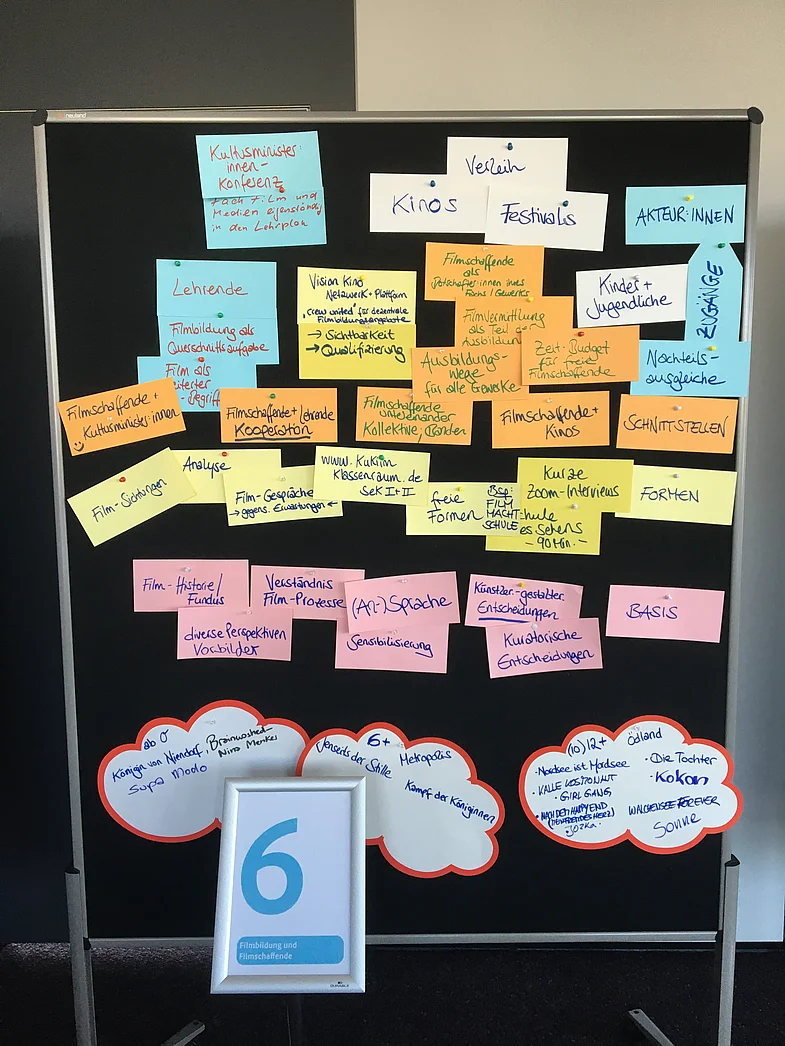 neuland
Kultusminister:
innen-
Konferenz
Fach Film und
Medien eigenständig
in den Lehrplan
Verleih
Kinos
Festivals
AKTEUR:INNEN
ZUGÄNGE
Lehrende
Filmbildung als
Querschnittsaufgabe
Film als
Vision Kino
Netzwerk + Plattform
„Crew united" für dezentrale
Filmbildungsangebote
→ Sichtbarkeit
→ Qualifizierung
Filmschaffende
als
Botschafter:innen ihres
Fachs / Gewerks
Filmvermittlung
als Teil der
Ausbildung
Ausbildungs-
wege
für alle Gewerke
Zeit-Budget
für freie
Filmschaffende
Kinder +
Jugendliche
Nachteils-
ausgleiche
Filmschaffende +
Kultusminister:innen
Filmschaffende + Lehrende
Kooperation
Filmschaffende
untereinander
Kollektive, Banden
Filmschaffende +
Kinos
SCHNITTSTELLEN
Film-Sichtungen
Analyse
Film-Gespräche
→ gegens. Erwartungen ←
www.Kukiim
Klassenraum.de
Sek I + II
freie
Formen
Bsp:
FILM
MACHT
SCHULE
Kurze
Zoom-Interviews
hule
es Sehens
- 90 Min. -
FORMEN
Film-Historie/
Fundus
Verständnis
Film-Prozesse
(An-)Sprache
Künstler.-gestalter.
Entscheidungen
BASIS
diverse Perspektiven
Vorbilder
Sensibilisierung
Kuratorische
Entscheidungen
ab 0
Königin von Niendorf, Brainwashed-
Nina Menkes
Supa Modo
6+
Jenseits der Stille
Metropolis
Kampf der Königinnen
(10) 12+
Ödland
• Nordsee ist Mordsee
• Die Tochter
• KALLE KOSMONAUT
• Kokon
• GIRL GANG
• NACH DEM HAPPY END
WALCHENSEE FOREVER
Sonne
6
Filmbildung und
Filmschaffende
DURABLE